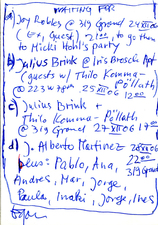 WAITING FOR
a) Joy Robles @ 319 Grand 24 XII 06
(+x, Guest) 21:00, to go them
to Micki Hohl's party
b) Julius Brink @ Iris Bresch Apt
(guests w/ Thilo Komma-
@ 223 W 78 25 XII 06 Pöllath)
c) Julius Brink + 12:00
Thilo Komma-Pöllath
@ 319 Grand 27 XII 06 17:00
d) J. Alberto Martinez 28 XII 06
plus: Pablo, Ana, 22:00
Andres, Mar, Jorge, 319 Grand
Paula, Inaki, Jorge, Ines